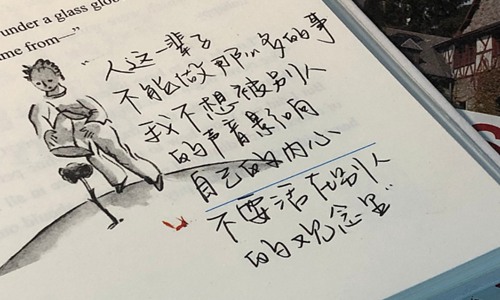 under a glass glo
me from—"
"人这一辈子
不能做那么多的事
我不想被别人
的声音影响
自己的内心
不要活在别人
的观念里"